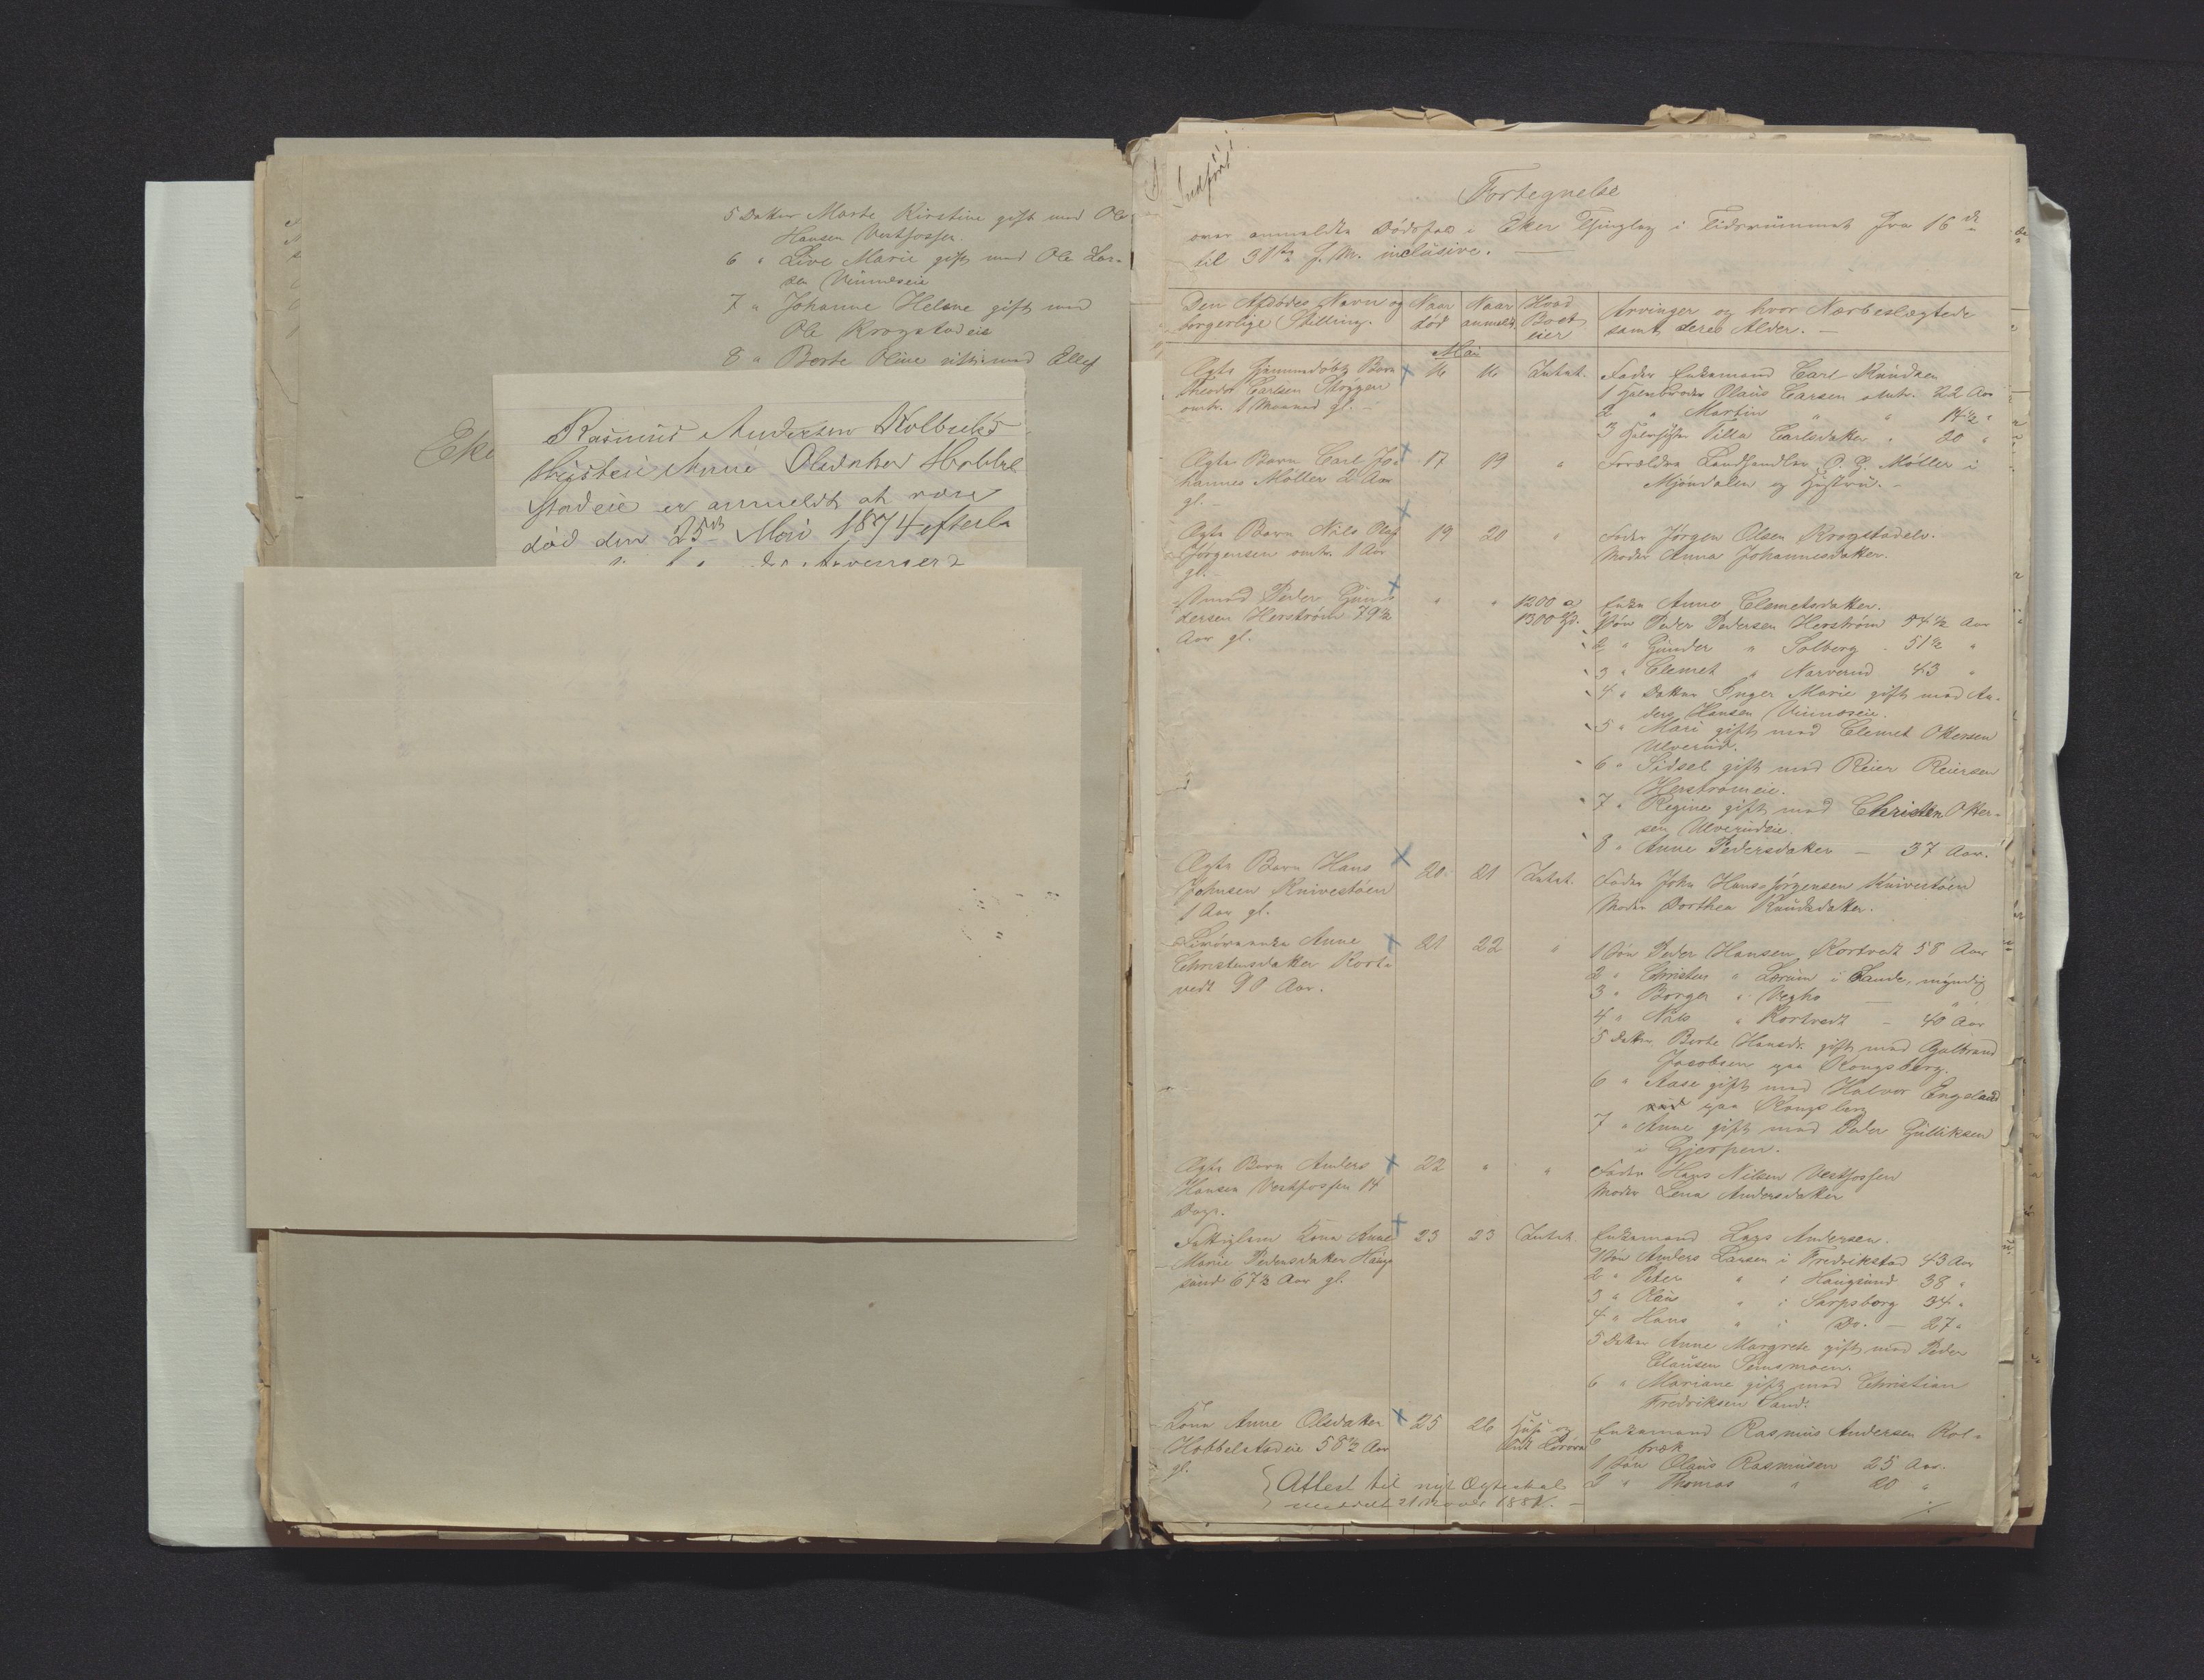 5 Datter Marte Kirstine gift med Ole
Hansen Vestfossen
6 " Live Marie gift med Ole Lar-
sen Vinneseie
7 " Johanne Helene gift med
Ole Krogstadeie
8 " Berte Oline gift med Ellef
Eke
Rasmus Andersen Kolbreks
Hustru Anne Olsdatter Hobbel
stadeie er anmeldt at være
död den 25de Mai 1874 efterla
Indført
Fortegnelse
over anmeldte Dødsfald i Eker Thinglag i Tidsrummet fra 16de
til 31te f. M. inclusive. —
Den Afdødes Navn og borgerlige Stilling.
Naar død
Naar anmeldt
Hvad Boet eier
Arvinger og hvor Nærbeslægtede samt deres Alder. —
Mai
Ægte Hjemmedøbt Barn
Theodor Carlsen Skoggen
omtr. 1 Maaned gl. —
16 16 Intet.
Fader Enkemand Carl Knudsen
1 Halvbroder Olaus Carlsen omtr. 22 Aar
2 " Martin " " 14½ "
3 Halvsøster Pilla Carlsdatter " 20 "
Ægte Barn Carl Jo-
hannes Møller 2 Aar
gl.
17 19 "
Forældre Landhandler O. G. Møller i
Mjøndalen og Hustru. -
Ægte Barn Nils Olaf
Jørgensen omtr. 1 Aar
gl. -
19 20 "
Fader Jørgen Olsen Krogstadelv.
Moder Anna Johannesdatter.
Peder Gunde
dersen Herstrøm 79½
Aar gl.
" " 1200 a
1300 Spd.
Enke Anne Clemetsdatter.
1 Søn Peder Pedersen Herstrøm 54½ Aar
2 " Gunder " Solberg - 51½ "
3 " Clemet " Narverud 43 "
4 " Datter Inger Marie gift med An-
ders Hansen Vinneseie.
5 " Mari gift med Clemet Ottersen
Ulverud.
6 " Sidsel gift med Reier Reiersen
Herstrømeie.
7 " Regine gift med Christen Otter-
sen Ulverudeie.
8 " Anne Pedersdatter — 37 Aar.
Ægte Barn Hans
Johnsen Knivestøen
1 Aar gl.
20 21 Intet.
Fader John Hans Jørgensen Knivestøen
Moder Dorthea Knudsdatter.
Anne
Christensdatter Kort-
vedt 90 Aar.
21 22 "
1 Søn Peder Hansen Kortvedt 58 Aar
2 " Christen " Lerum i Sande, myndig
3 " Borger " — "
4 " Nils " Kortvedt - 40 Aar
5 Datter Berte Hansdr. gift med Gulbrand
Jacobsen paa Kongsberg.
6 " Aase gift med Halvor Engeland
paa Kongsberg
7 " Anne gift med Peder Gulliksen
i Gjerpen.
Ægte Barn Anders
Hansen Vestfossen 14
Dage.
22 " "
Fader Hans Nilsen Vestfossen
Moder Lena Andersdatter
Fattiglem Kone Anne
Marie Pedersdatter Haug-
sund 67½ Aar gl.
23 23 Intet
Enkemand Lars Andersen.
1 Søn Anders Larsen i Fredrikstad 43 Aar
2 " Peter " i Haugsund 38 "
3 " " i Sarpsborg 34 "
4 " Hans " i Do. — 27 "
5 Datter Anne Margrete gift med Peder
Clausen Semsmoen.
6 " Mariane gift med Christian
Fredriksen Sand.
Kone Anne Olsdatter
Hobbelstadeie 58½ Aar
gl.
25 26 Huus og
Enkemand Rasmus Andersen Kol-
bræk
1 Søn Olaus Rasmusen 25 Aar.
2 " Thomas " 20 "
Attest til nyt Ægteskab
meddelt 21